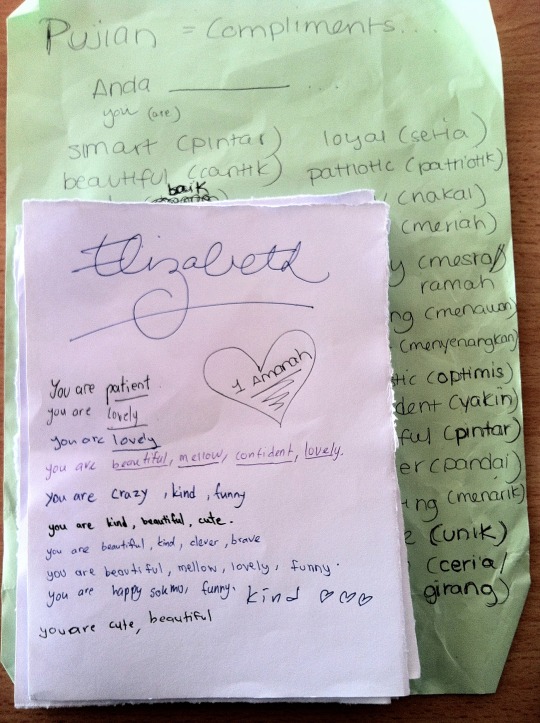 Pujian = Compliments...
Anda
you (are)
smart (pintar) loyal (setia)
beautiful (cantik) patriotic (patriotik)
baik
(nakal)
(meriah)
y (mesra)
ramah
ng (menawan)
(menyenangkan)
tic (optimis)
dent (yakin)
ful (pintar)
er (pandai)
ing (menarik)
e (unik)
(ceria/
girang)
Elizabeth
1 Amanah
You are patient
you are lovely
you are lovely
you are beautiful, mellow, confident, lovely.
you are crazy, kind, funny
you are kind, beautiful, cute.
you are beautiful, kind, clever, brave
you are beautiful, mellow, lovely, funny.
you are happy funny. kind ♡♡♡
you are cute, beautiful